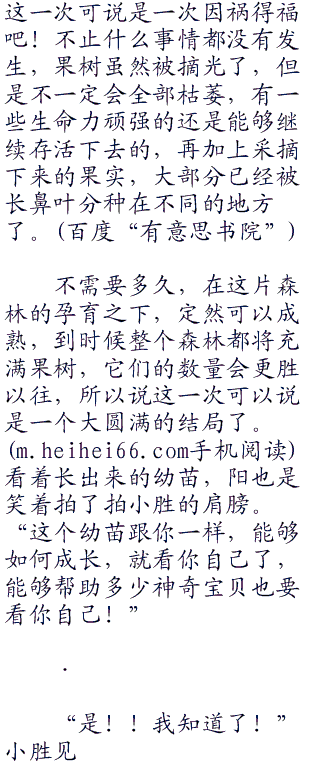 这一次可说是一次因祸得福
吧！不止什么事情都没有发
生，果树虽然被摘光了，但
是不一定会全部枯萎，有一
些生命力顽强的还是能够继
续存活下去的，再加上采摘
下来的果实，大部分已经被
长鼻叶分种在不同的地方
了。(百度“有意思书院”)
不需要多久，在这片森
林的孕育之下，定然可以成
熟，到时候整个森林都将充
满果树，它们的数量会更胜
以往，所以说这一次可以说
是一个大圆满的结局了。
(m.heihei66.com手机阅读)
看着长出来的幼苗，阳也是
笑着拍了拍小胜的肩膀。
“这个幼苗跟你一样，能够
如何成长，就看你自己了，
能够帮助多少神奇宝贝也要
看你自己！”
.
“是！！我知道了！”
小胜见